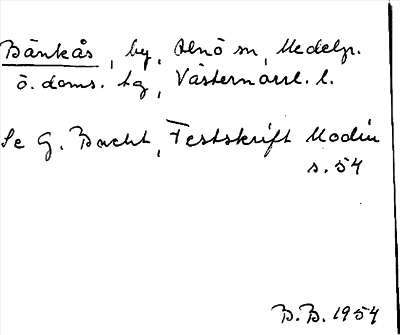 Bänkås, by, Alnö sn, Medelp.
ö. doms. tg, Västernorrl. l.
Se G. Bucht, Festskrift Modin
s. 54
B.B. 1954